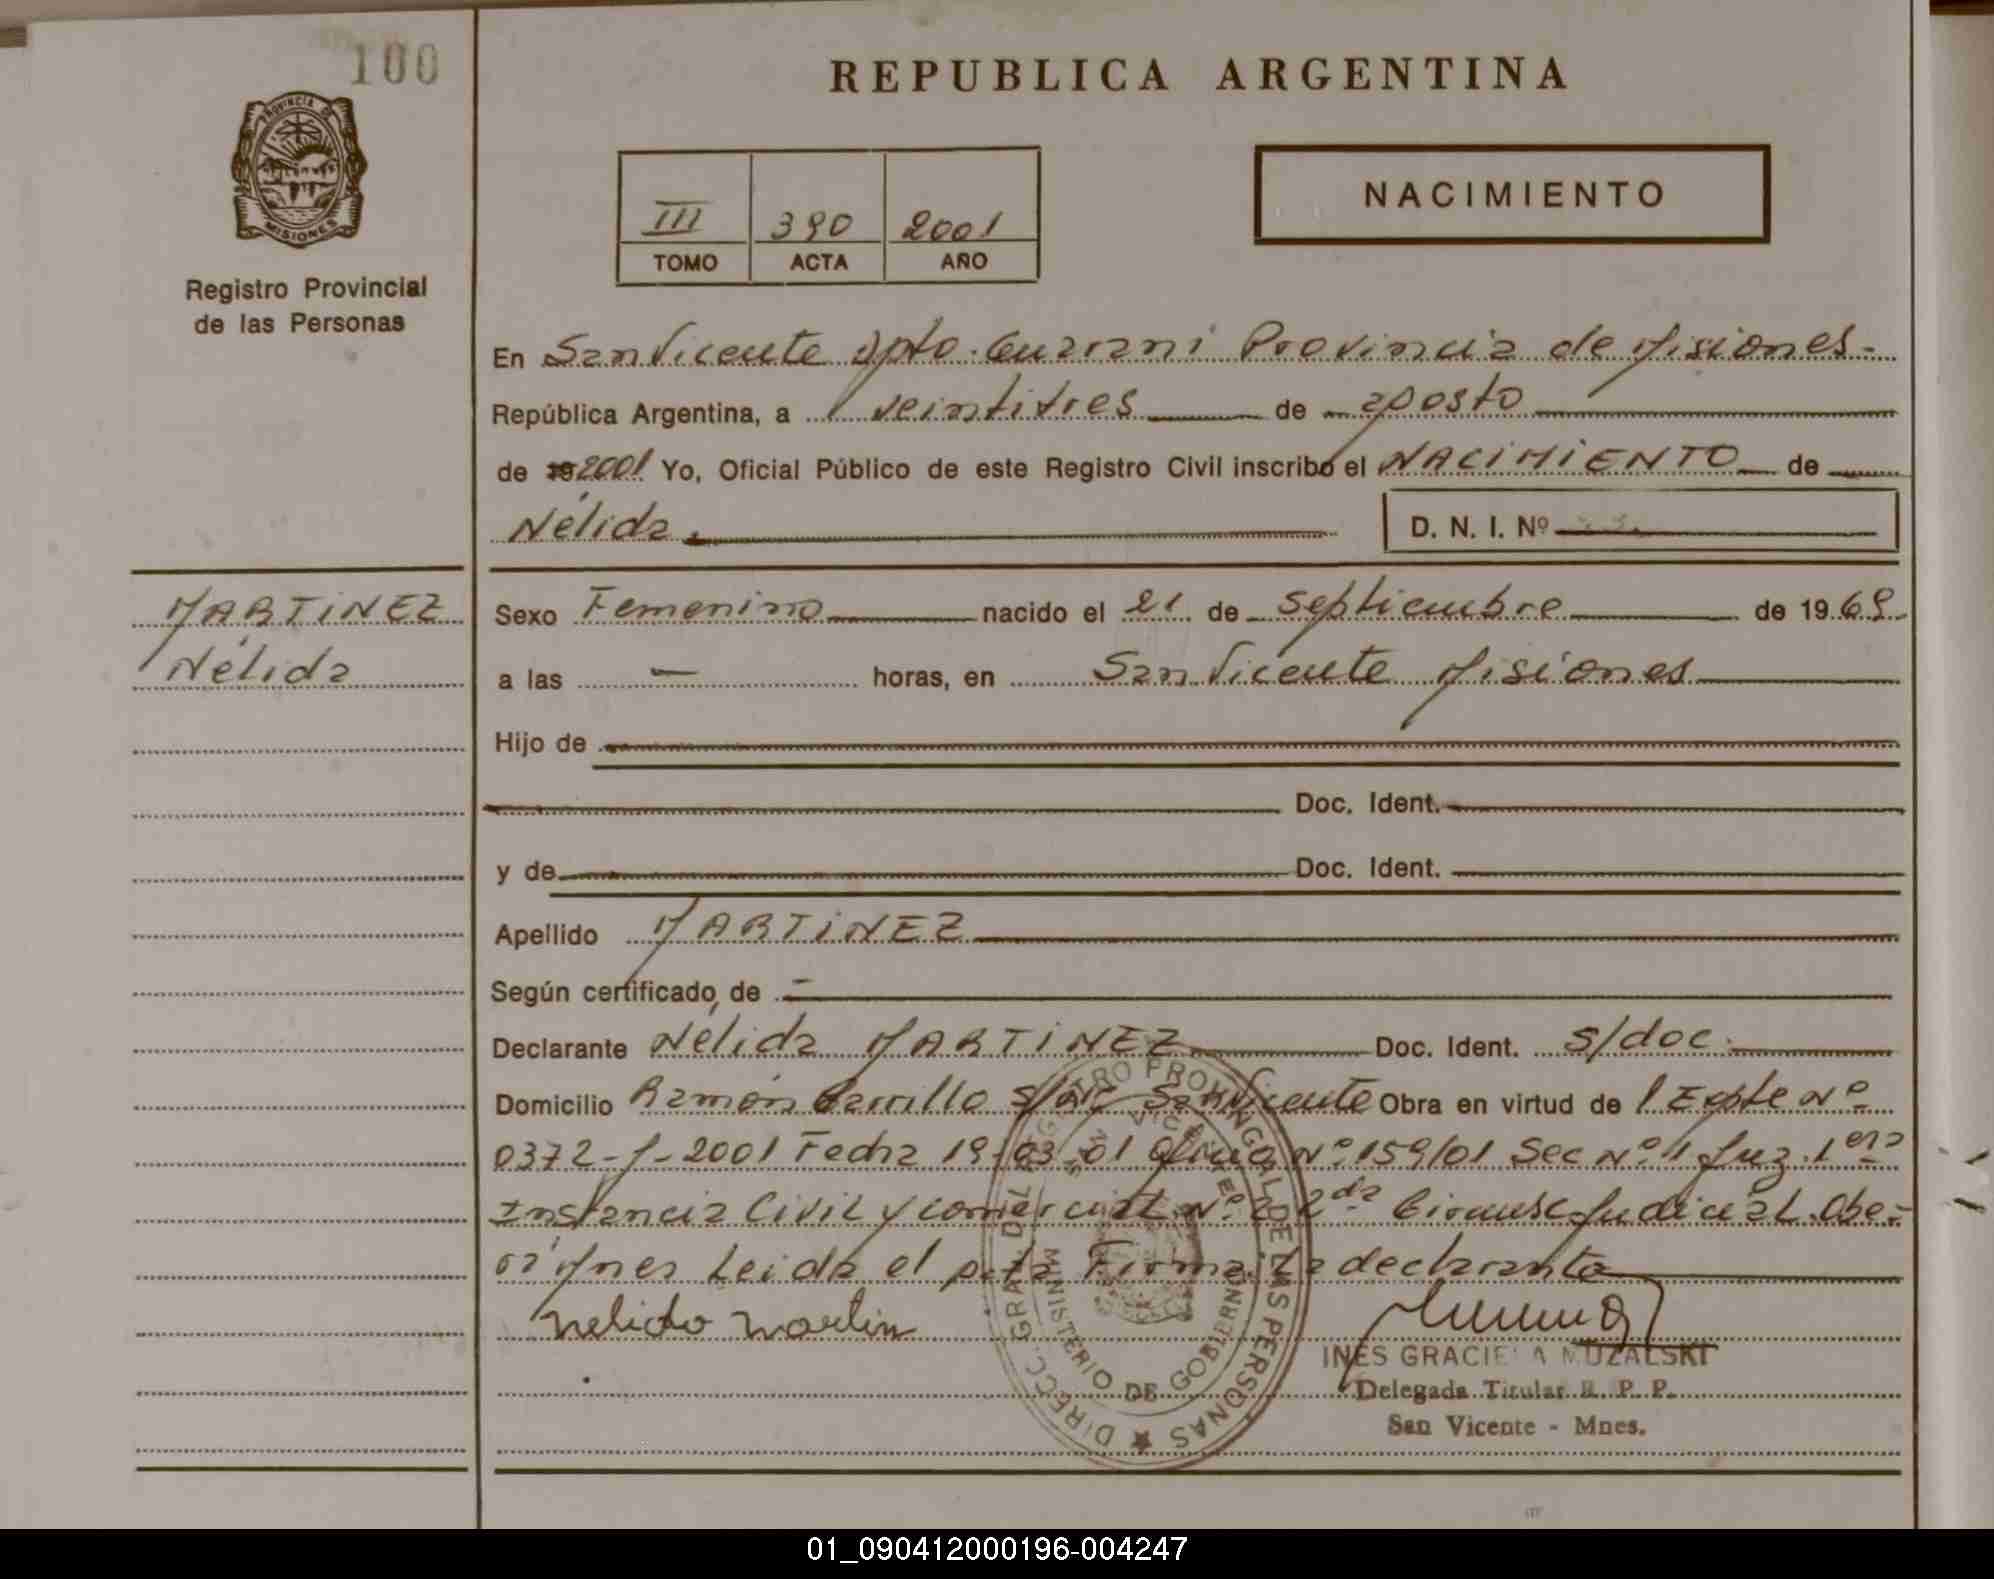 100
PROVINCIA DE
MISIONES
Registro Provincial
de las Personas
REPUBLICA ARGENTINA
III 390 2001
TOMO ACTA AÑO
NACIMIENTO
En San Vicente Dpto. Guarani Provincia de Misiones-
República Argentina, a veintitres de agosto
de 19 2001 Yo, Oficial Público de este Registro Civil inscribo el NACIMIENTO de
Nélida. D. N. I. Nº
MARTINEZ
Nélida
Sexo Femenino nacido el 21 de Septiembre de 19 69
a las — horas, en San Vicente Misiones
Hijo de
Doc. Ident.
y de Doc. Ident.
Apellido MARTINEZ
Según certificado de -
Declarante Nélida MARTINEZ Doc. Ident. s/doc.
Domicilio Ramón Carrillo San Vicente Obra en virtud de Expte Nº
0372-M-2001 Fecha 19-03-01 Oficio Nº 159/01 Sec Nº 1 Juz. 1era
Instancia Civil y comercial Nº 2 2da Circunsc Judicial. Obe-
rá Mnes Leida el acta Firma La declarante
Nelida Martin
INES GRACIELA MUZALSKI
Delegada Titular R. P. P.
San Vicente - Mnes.
DIRECC. GRAL. DEL REGISTRO PROVINCIAL DE LAS PERSONAS
MINISTERIO DE GOBIERNO
SAN VICENTE
01_090412000196-004247